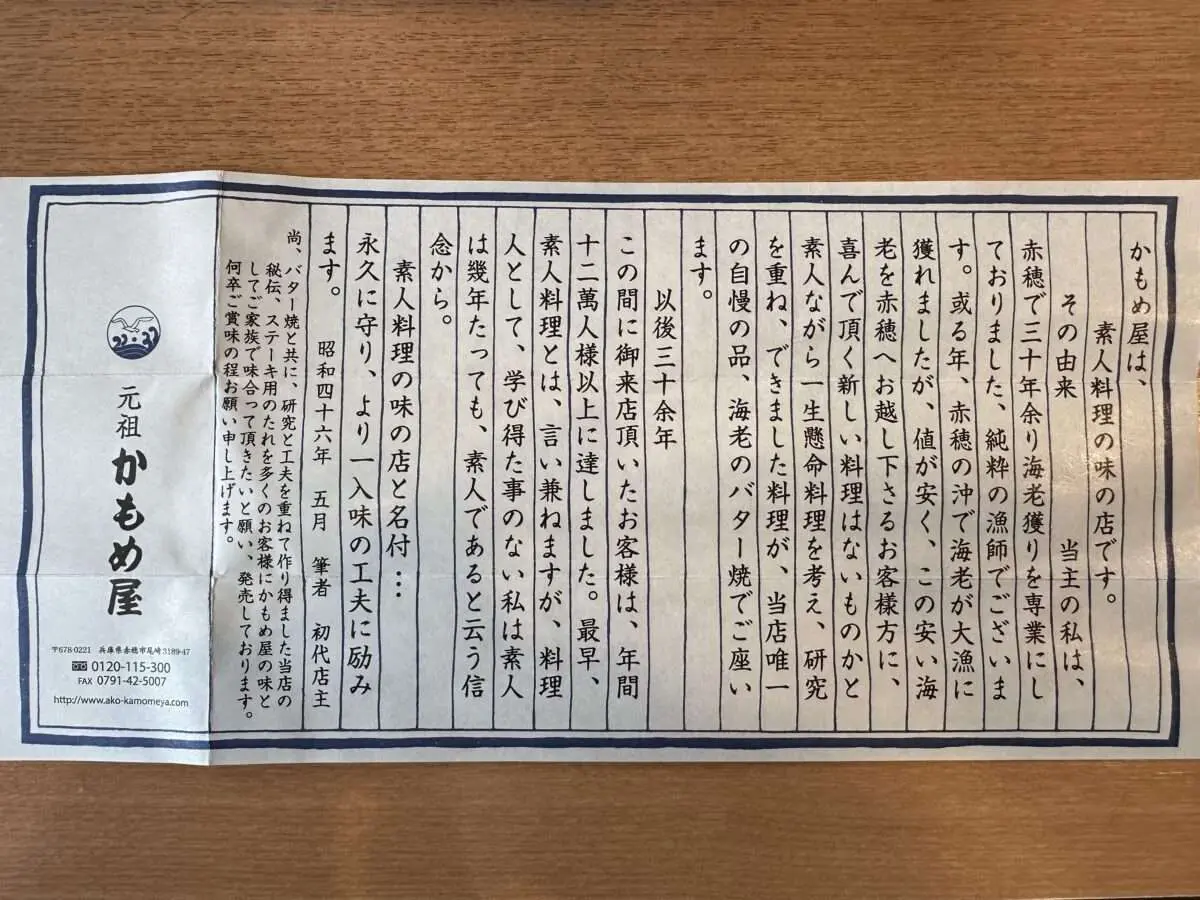 かもめ屋は、
素人料理の味の店です。
その由来　当主の私は、
赤穂で三十年余り海老獲りを専業にし
ておりました、純粋の漁師でございま
す。或る年、赤穂の沖で海老が大漁に
獲れましたが、値が安く、この安い海
老を赤穂へお越し下さるお客様方に、
喜んで頂く新しい料理はないものかと
素人ながら一生懸命料理を考え、研究
を重ね、できました料理が、当店唯一
の自慢の品、海老のバター焼でご座い
ます。
以後三十余年
この間に御来店頂いたお客様は、年間
十二萬人様以上に達しました。最早、
素人料理とは、言い兼ねますが、料理
人として、学び得た事のない私は素人
は幾年たっても、素人であると云う信
念から。
素人料理の味の店と名付…
永久に守り、より一入味の工夫に励み
ます。　昭和四十六年　五月　筆者　初代店主
尚、バター焼と共に、研究と工夫を重ねて作り得ました当店の
秘伝、ステーキ用のたれを多くのお客様にかもめ屋の味と
してご家族で味合って頂きたいと願い、発売しております。
何卒ご賞味の程お願い申し上げます。
元祖かもめ屋
〒678-0221　兵庫県赤穂市尾崎3189-47
0120-115-300
FAX 0791-42-5007
http://www.ako-kamomeya.com